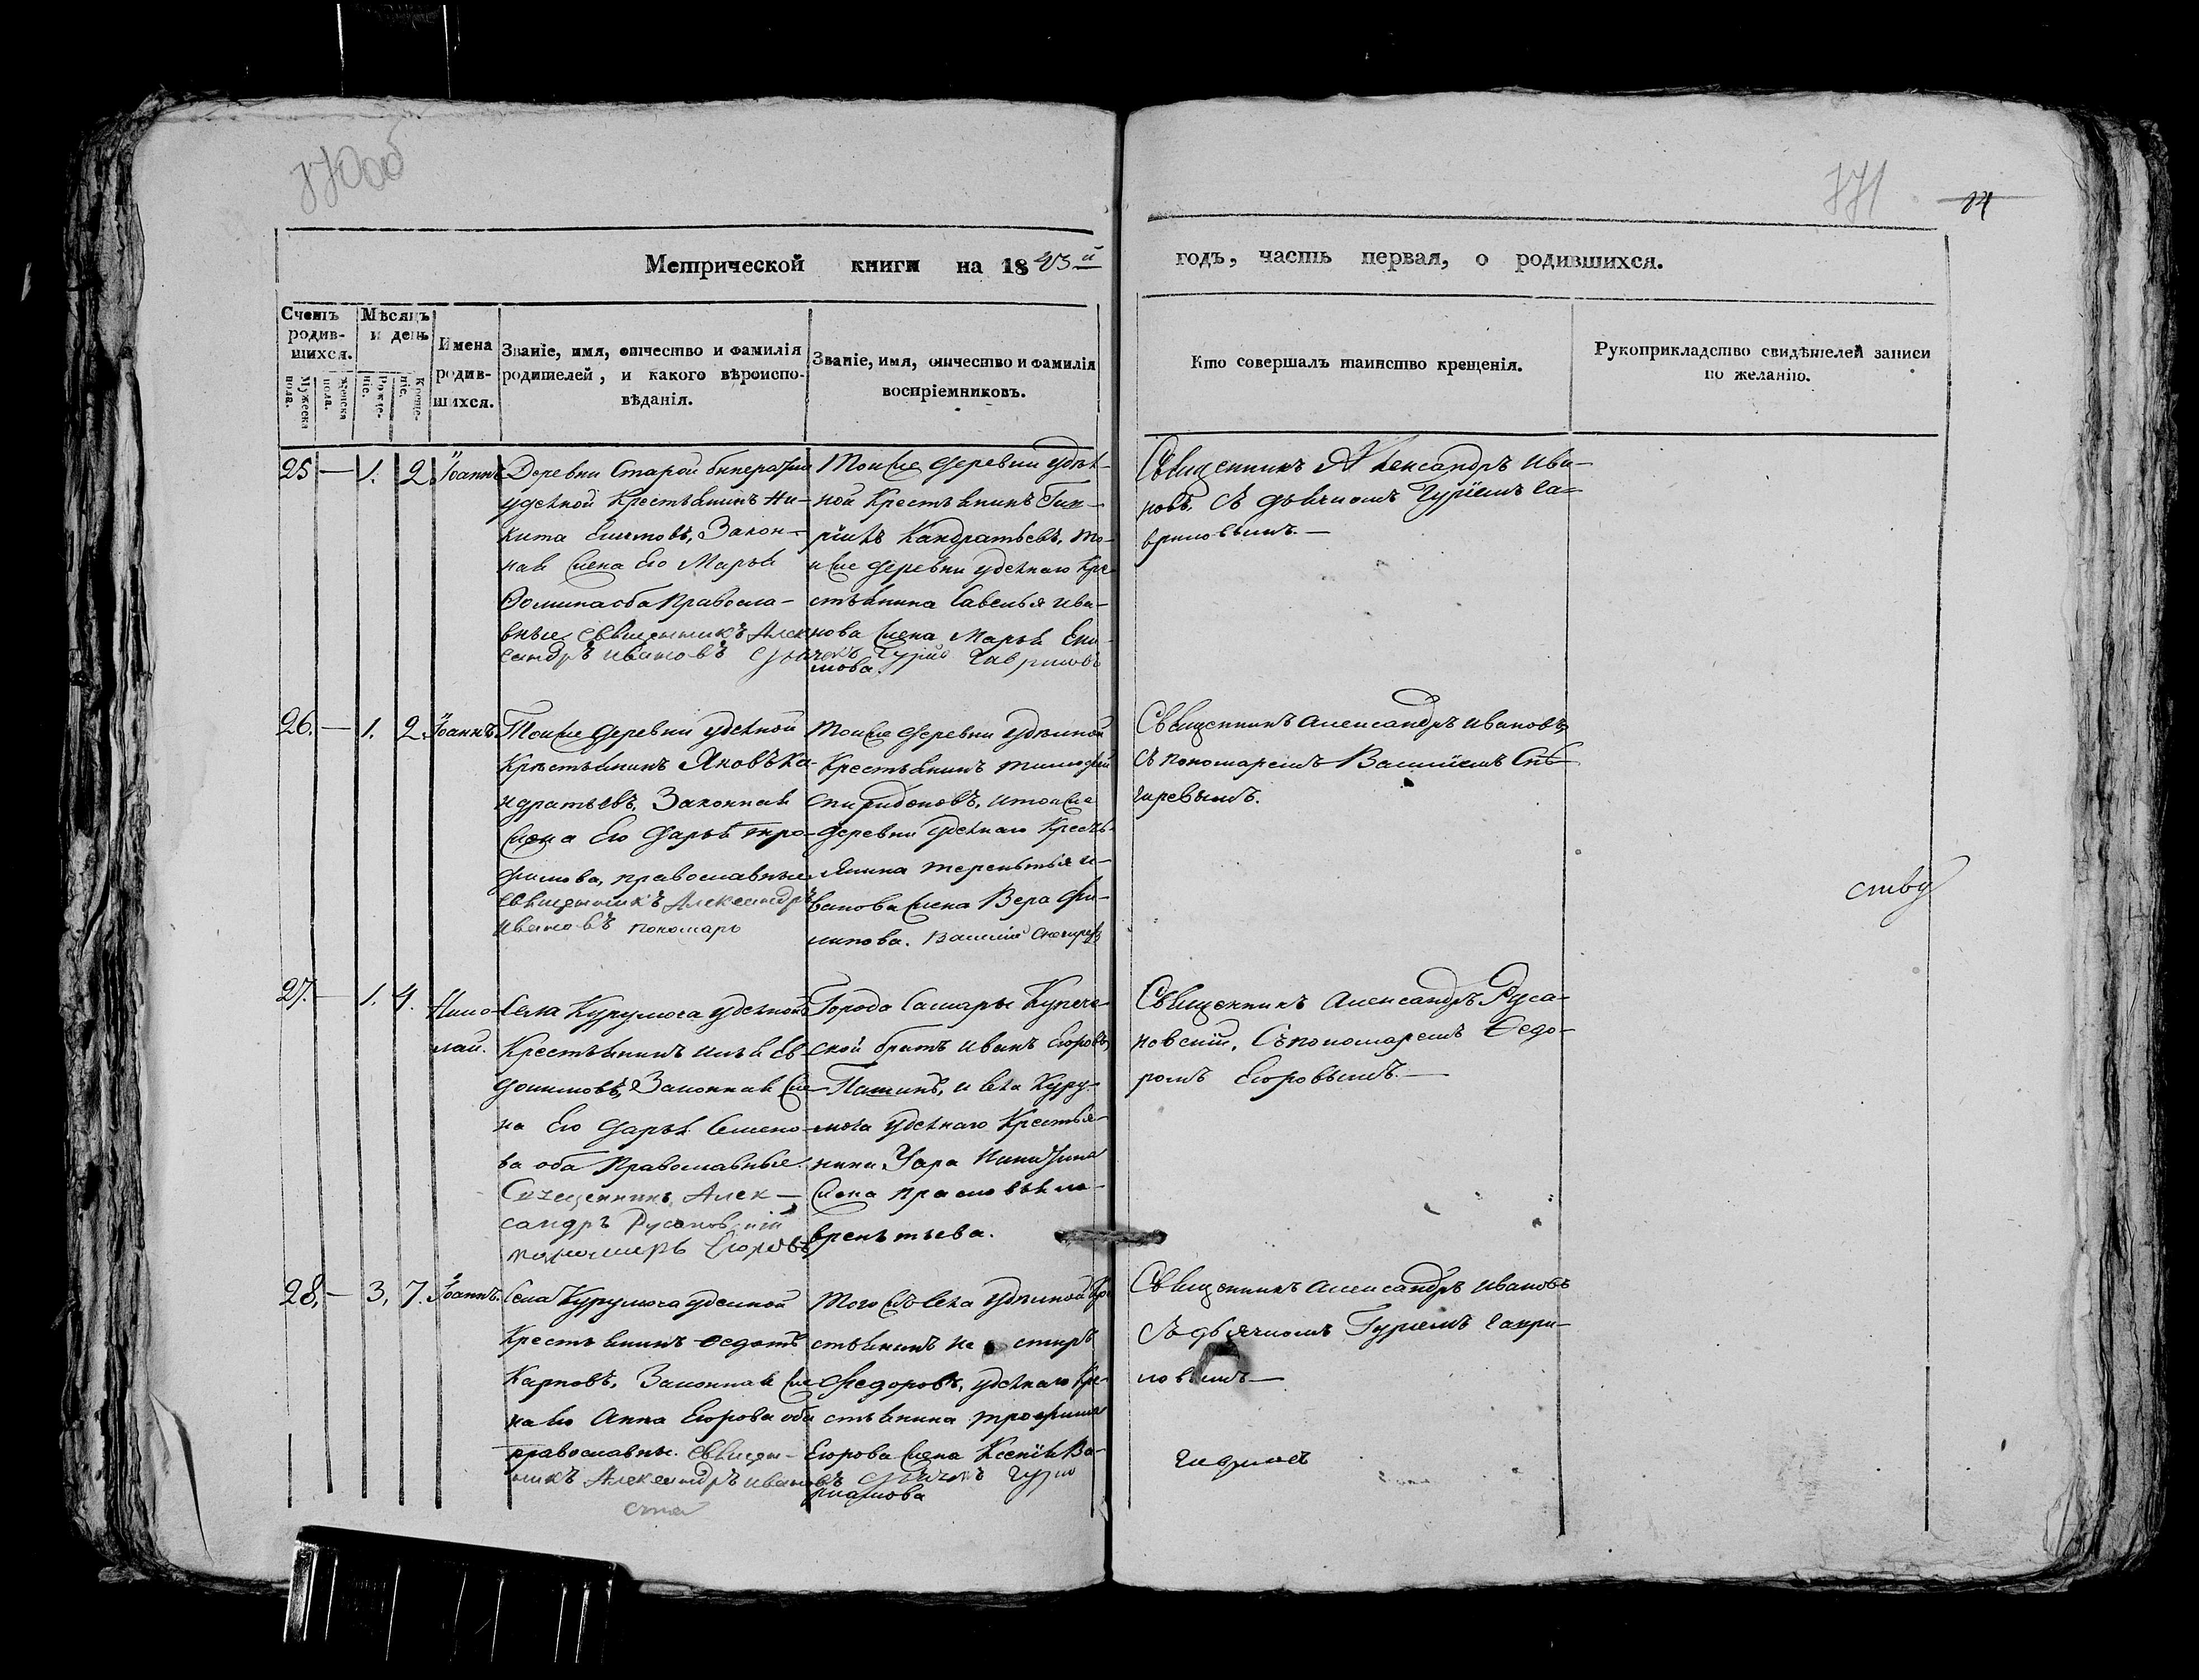 770об
771
84
Метрической книги на 1843й годъ, часть первая, о родившихся.
Счетъ родив-шихся.
Мужеска пола.
Женска пола.
Мѣсяцъ и день
Рожде-ніе.
Креще-ніе.
Имена родив-шихся.
Званіе, имя, отчество и фамилія родителей, и какого вѣроиспо-вѣданія.
Званіе, имя, отчество и фамилія воспріемниковъ.
Кто совершалъ таинство крещенія.
Рукоприкладство свидѣтелей записи по желанію.
25 — 1. 2. Іоаннъ
Деревни Старой
удѣлной Крестьянинъ Ни-
кита Закон-
ная жена Его Марья
Фомина оба Правосла-
вные Священникъ Алек
сандръ Ивановъ дьячекъ Гурій Гавриловъ
Тойже деревни удѣл-
ной Крестьянинъ
Кандратьевъ, то-
йже деревни уделнаго Кре-
стьянина Савелья Ива-
нова жена Марья Ефи-
мова.
Священникъ Александръ Ива-
новъ, съ дьячкомъ Гуріемъ Га-
вриловымъ.—
26. — 1. 2. Іоаннъ
Тойже деревни уделной
Крестьянинъ Яковъ Ка-
ндратьевъ, Законная
жена Его Дарья Тро-
фимова, православные
священникъ Александръ
Ивановъ пономарь
Тойже деревни уделной
Крестьянинъ Тимофей
Спиридоновъ, и тойже
деревни уделнаго Кресть-
янина Терентья И-
ванова жена Вера Фи-
липова. Василій Снегирев
Священникъ Александръ Ивановъ,
съ пономаремъ Василіемъ Сне-
гиревымъ.
ству
27. — 1. 4. Нико-
лай.
Села Курумоча уделной
Крестьянинъ Илья Ев-
докимовъ, Законная же-
на Его Дарья Семено-
ва оба Православные.
Священникъ Алек-
сандръ Русановскій
пономарь Егоровъ
Города Самары Купече-
ской братъ Иванъ Егоровъ
и села Куру-
моча уделнаго Крестья-
нина Уара Никитина
жена Прасковья Ла-
врентьева.
Священникъ Александръ Руса-
новскій, Съ пономаремъ Федо-
ромъ Егоровымъ.—
28. — 3. 7. Іоаннъ.
Села Курумоча уделной
Крестьянинъ Федотъ
Карповъ, Законная же
на Его Анна Егорова оба
православны. Священ-
никъ Александръ Ивановъ дьячекъ Гурій
ста
Того жъ села уделной Кре
стьянинъ Не стиръ
Федоровъ, уделнаго Кре-
стьянина Трофима
Егорова жена Ксенія Ва-
рламова
Священникъ Александръ Ивановъ
съ дьячкомъ Гуріемъ Гаври-
ловымъ—
Гавриловъ